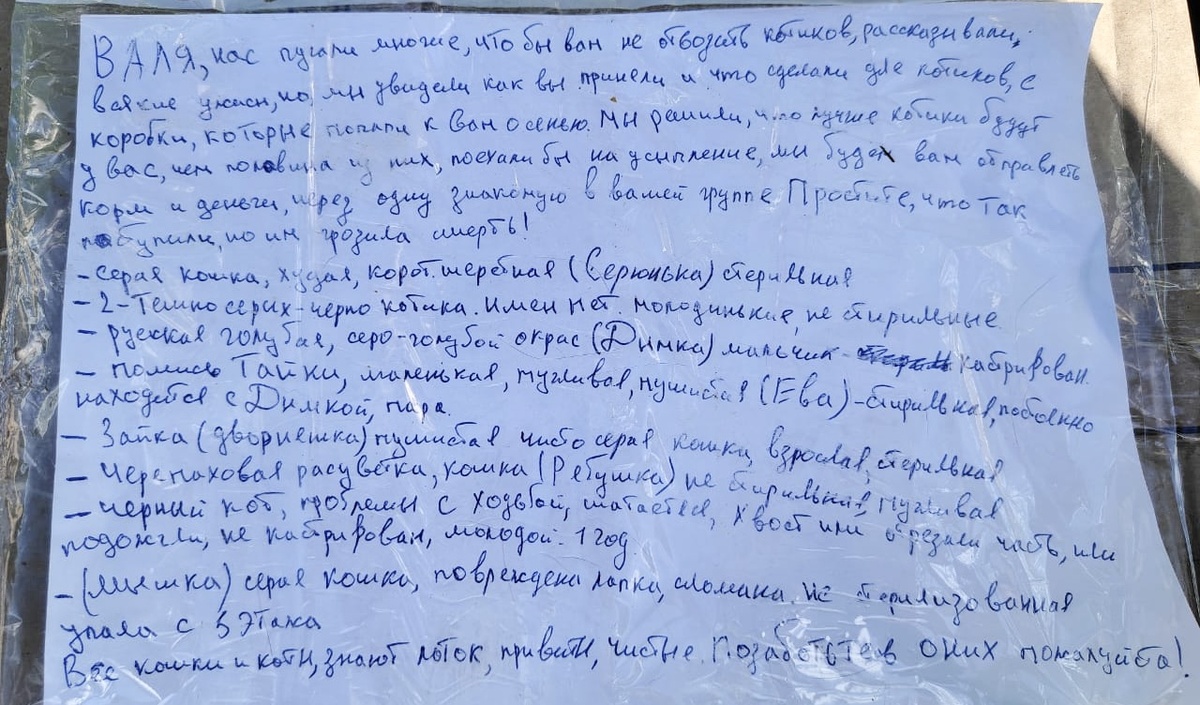 ВАЛЯ, нас пугали многие, что бы вам не отвозить котиков, рассказывали,
всякие ужасы, но, мы увидели как вы приняли и что сделали для котиков, с
коробки, которые попали к вам осенью. Мы решили, что лучше котики будут
у вас, чем половина из них, поехали бы на усыпление, мы будем вам отправлять
корм и деньги, через одну знакомую в вашей группе. Простите, что так
поступили, но им грозила смерть!
- серая кошка, худая, корот. шерстная (Серюнька) стерильная
- 2 - Темно серых-черно котика. Имен нет. молодинькие, не стирильные.
- русская голубая, серо-голубой окрас (Димка) мальчик - кастрирован.
- помись Тайки, маленькая, пугливая, пушистая (Ева) - стирильная, постоянно
находится с Димкой, пара.
- Зайка (дворняшка) пушистая чисто серая кошка, взрослая, стерильная
- Черепаховая расцветка, кошка (Рябушка) не стирильная, пугливая
- черный кот, проблемы с ходьбой, шатается, хвост или отрезали часть, или
подожгли, не кастрирован, молодой. 1 год.
- (Мышка) серая кошка, повреждена лапка, сломана. не стерилизованная
упала с 5 этажа
Все кошки и коты, знают лоток, привиты, чистые. Позаботьтесь о них пожалуйста!